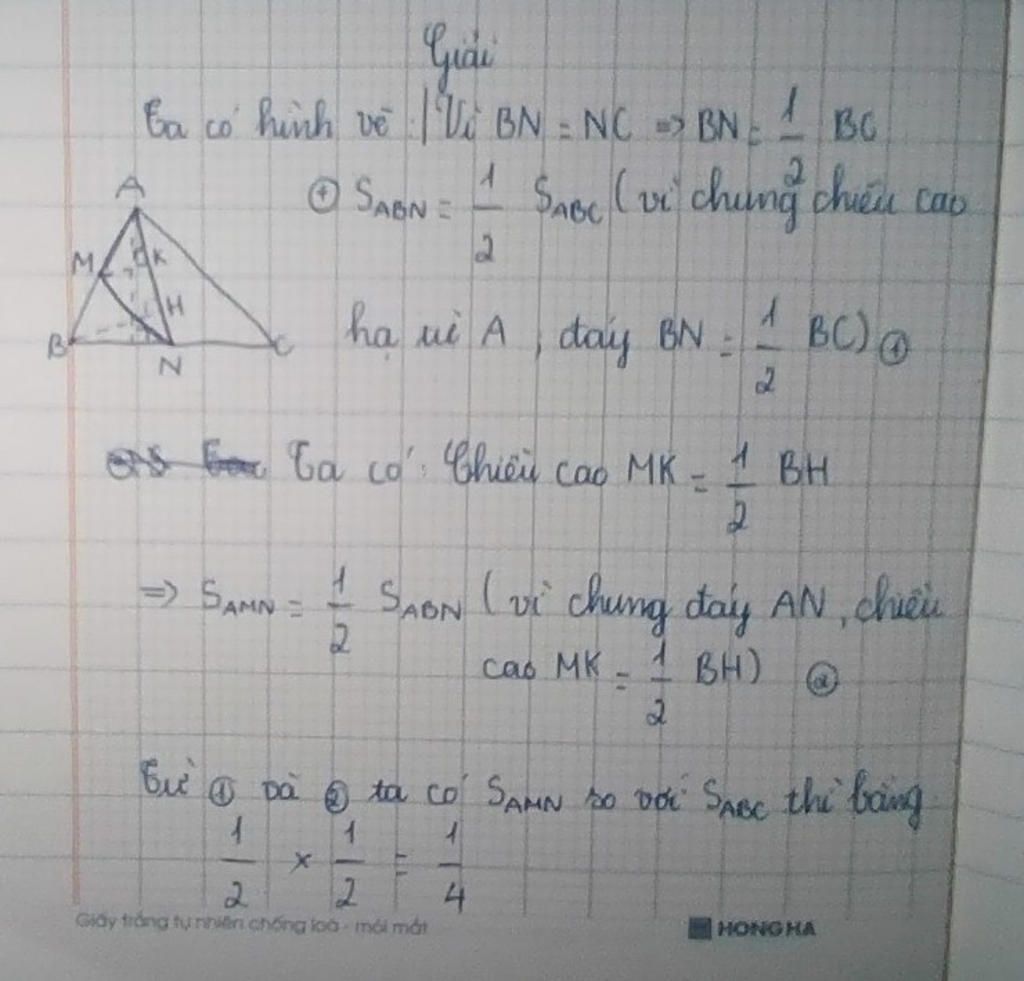 Giải
Ta có hình vẽ: | Vì BN = NC => BN = 1/2 BC
⊕ S_ABN = 1/2 S_ABC (vì chung chiều cao
A
M K
H
B N C
hạ từ A, đáy BN = 1/2 BC) ①
Ta có: Chiều cao MK = 1/2 BH
=> S_AMN = 1/2 S_ABN (vì chung đáy AN, chiều
cao MK = 1/2 BH) ②
Từ ① và ② ta có S_AMN so với S_ABC thì bằng
1/2 × 1/2 = 1/4
Giấy trắng tự nhiên chống loá - mỏi mắt
HONG HA